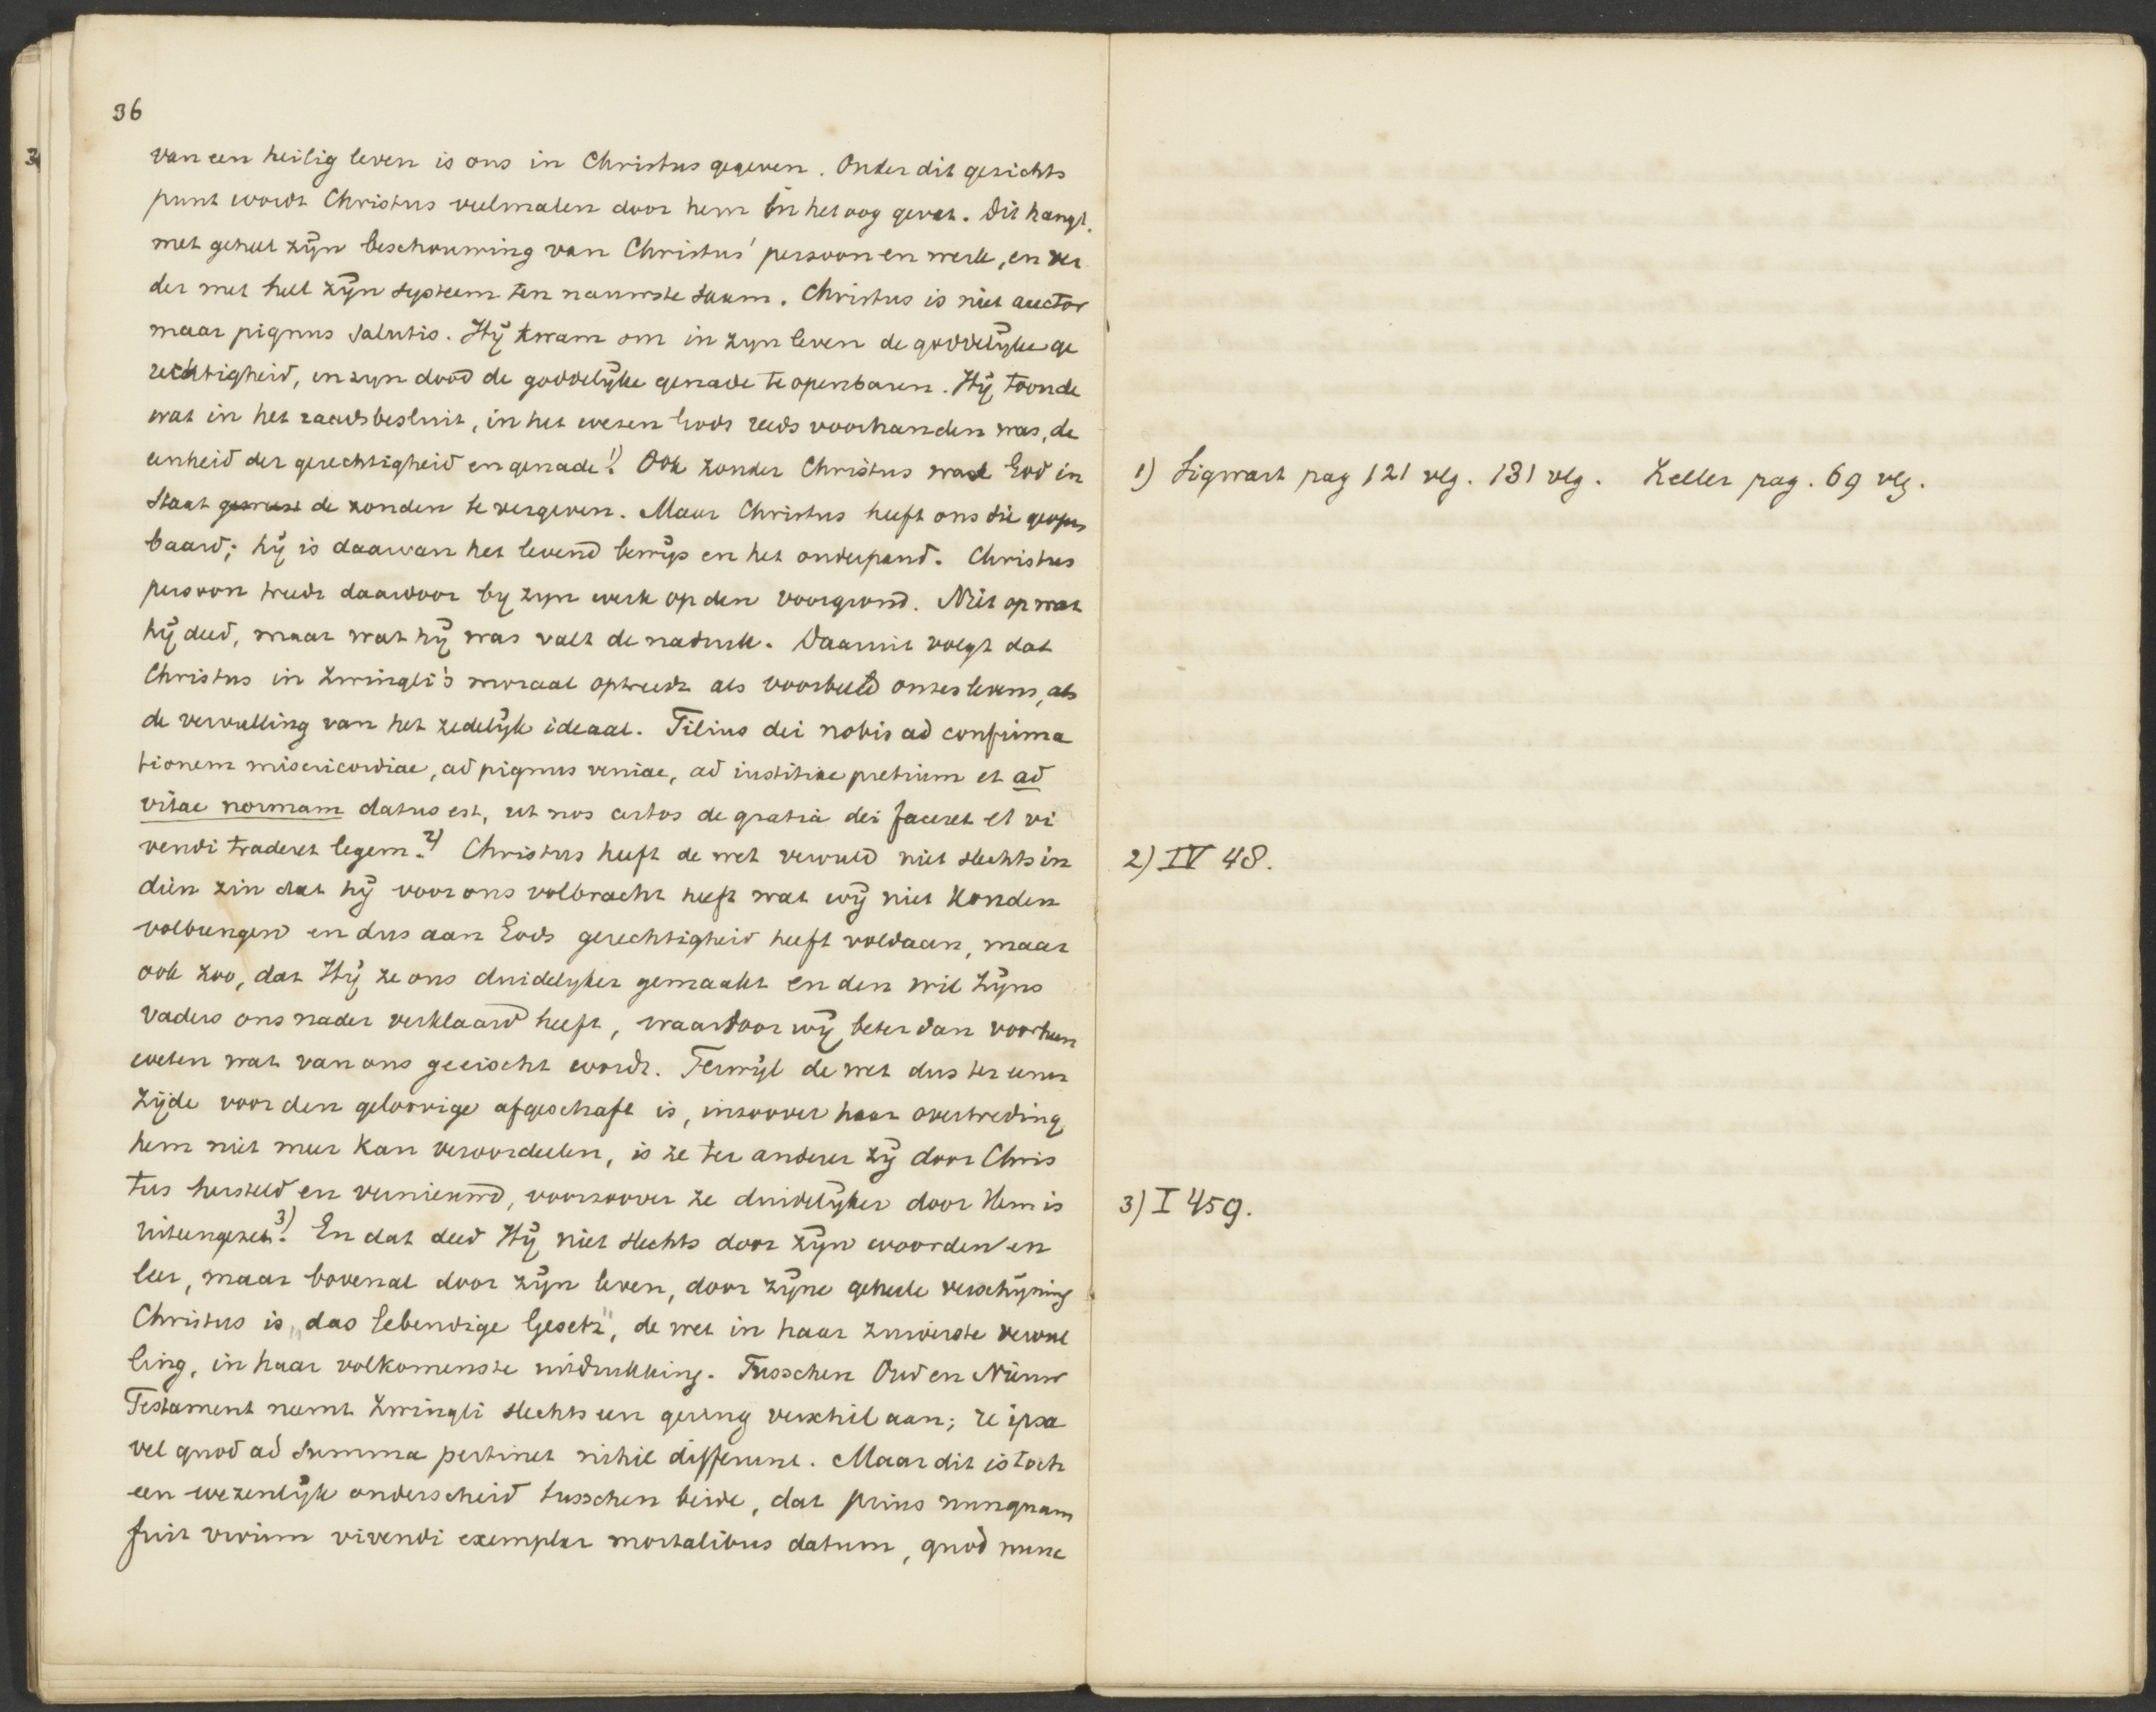 36
van een heilig leven is ons in Christus gegeven. Onder dit gezichts
punt wordt Christus veelmalen door hem in het oog gevat. Dit hangt
met geheel zijn beschouwing van Christus' persoon en werk, en ver
der met heel zijn systeem ten nauwste saam. Christus is niet auctor
maar pignus salutis. Hij kwam om in zyn leven de goddelyke ge
rechtigheid, in zyn dood de goddelyke genade te openbaren. Hij toonde
wat in het raadsbesluit, in het wezen Gods reeds voorhanden was, de
eenheid der gerechtigheid en genade.1) Ook zonder Christus was God in
staat geweest de zonden te vergeven. Maar Christus heeft ons die geopen
baard; hij is daarvan het levend bewijs en het onderpand. Christus
persoon treedt daardoor by zyn werk op den voorgrond. Niet op wat
hij deed, maar wat hij was valt de nadruk. Daaruit volgt dat
Christus in Zwingli's moraal optreedt als voorbeeld onzes levens, als
de vervulling van het zedelijk ideaal. Filius dei nobis ad confirma
tionem misericordiae, ad pignus veniae, ad iustitiae pretium et ad
vitae normam datus est, ut nos certos de gratia dei faceret et vi
vendi traderet legem.2) Christus heeft de wet vervuld niet slechts in
dien zin dat hij voor ons volbracht heeft wat wij niet konden
volbrengen en dus aan Gods gerechtigheid heeft voldaan, maar
ook zoo, dat Hij ze ons duidelyker gemaakt en den wil Zijns
vaders ons nader verklaard heeft, waardoor wij beter dan voorheen
weten wat van ons geeischt wordt. Terwijl de wet dus ter eener
zijde voor den geloovige afgeschaft is, inzoover haar overtreding
hem niet meer kan veroordeelen, is ze ter anderer zij door Chris
tus hersteld en vernieuwd, voorzoover ze duidelijker door Hem is
uiteengezet.3) En dat deed Hij niet slechts door zijn woorden en
leer, maar bovenal door zijn leven, door zijne geheele verschijning
Christus is „das lebendige Gesetz", de wet in haar zuiverste vervul
ling, in haar volkomenste uitdrukking. Tusschen Oud en Nieuw
Testament neemt Zwingli slechts een gering verschil aan; re ipsa
vel quod ad summa pertinet nihil differunt. Maar dit is toch
een wezenlijk onderscheid tusschen beide, dat prius nunquam
fuit vivum vivendi exemplar mortalibus datum, quod nunc
1) Sigwart pag 121 vlg. 131 vlg. Zeller pag. 69 vlg.
2) IV 48.
3) I 459.